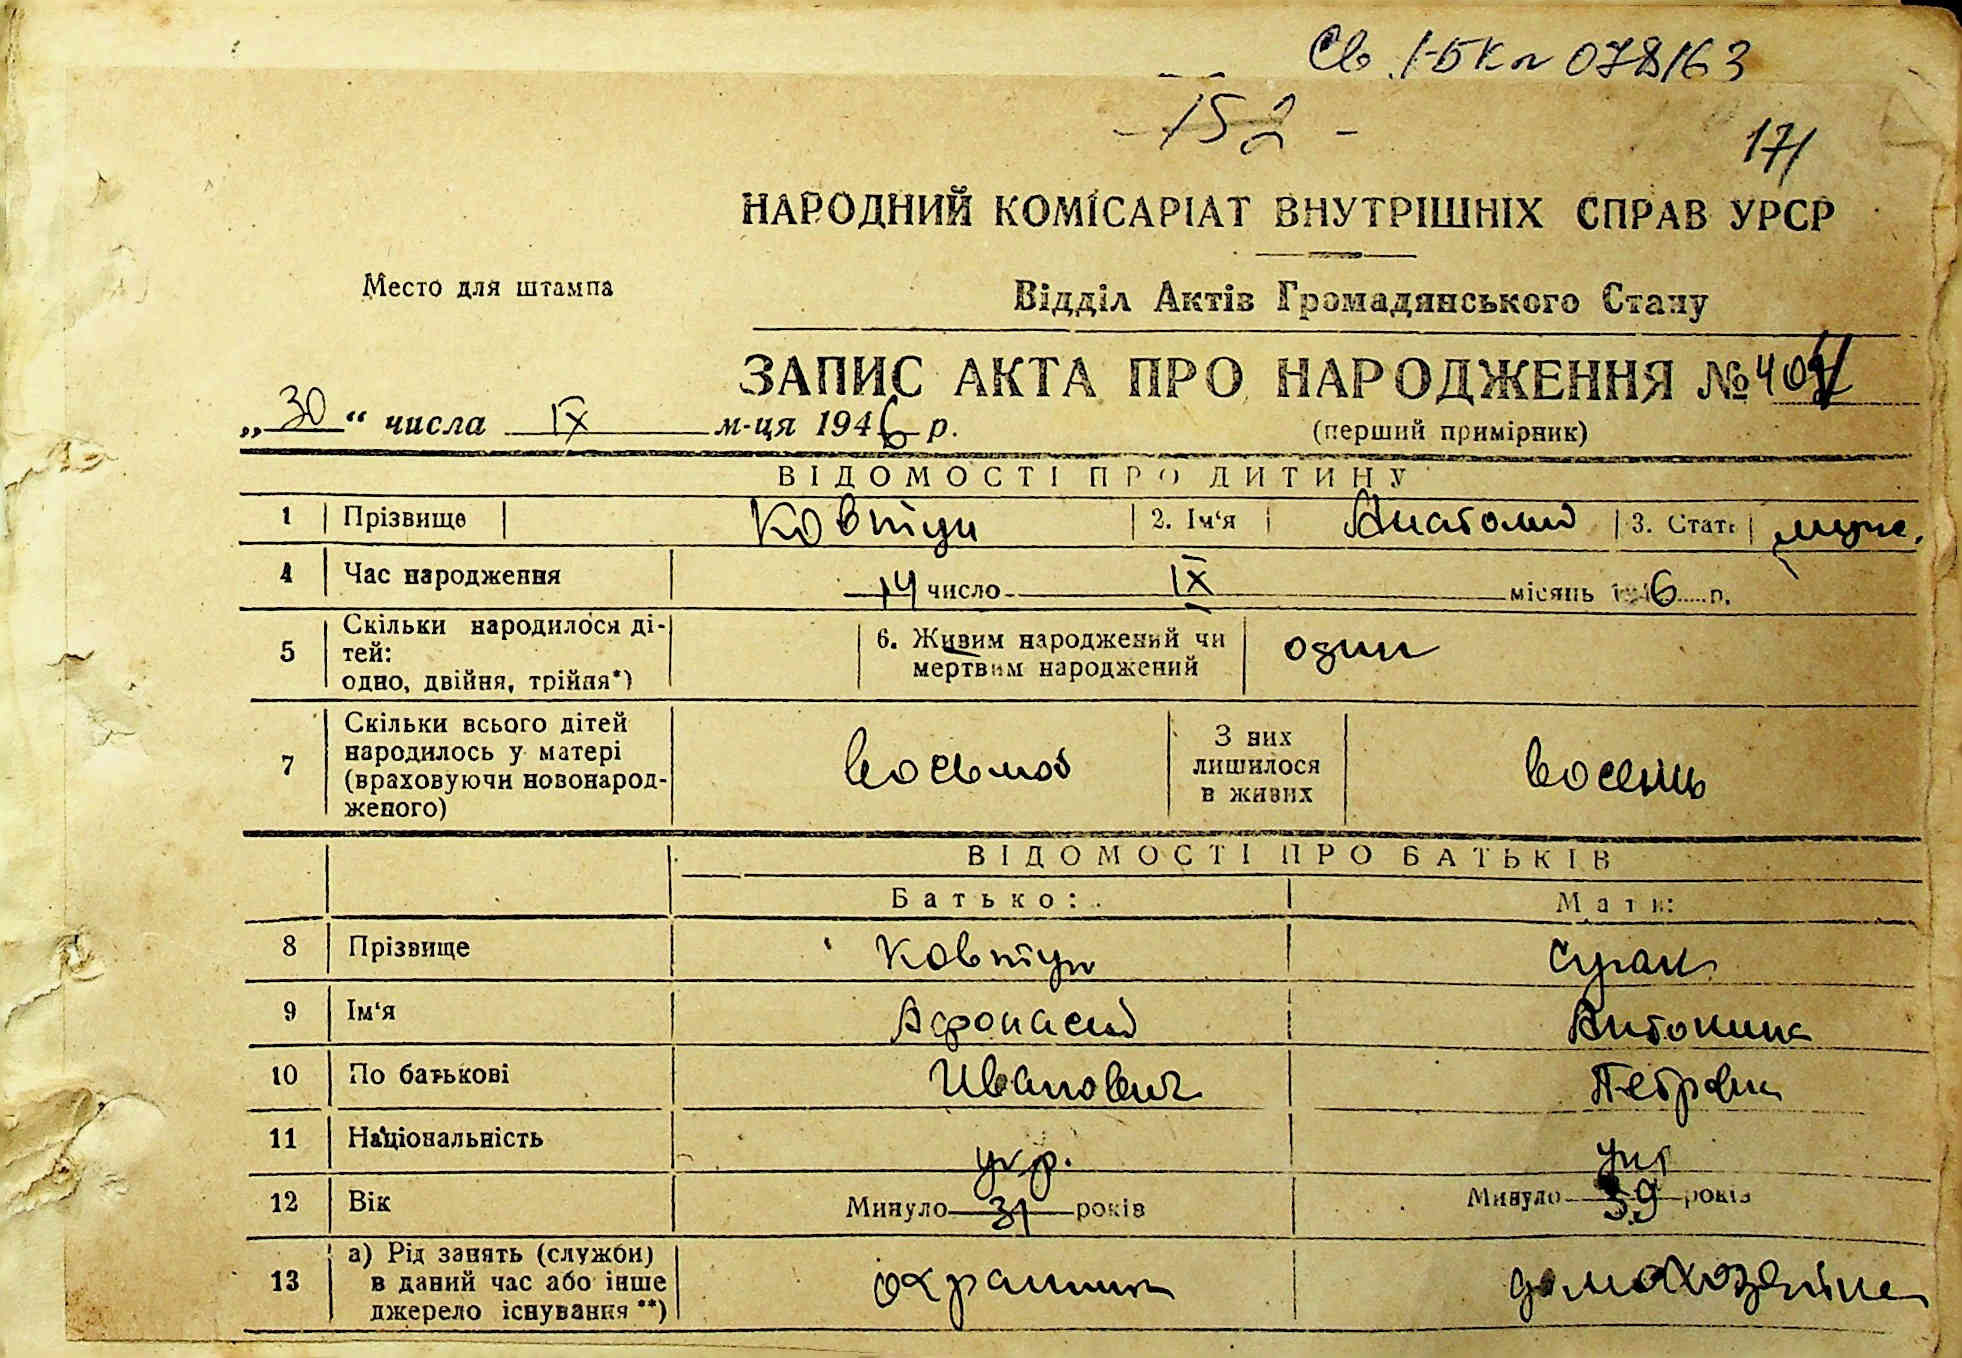 Св. I-БК № 078163
-152-
171
НАРОДНИЙ КОМІСАРІАТ ВНУТРІШНІХ СПРАВ УРСР
Место для штампа
Відділ Актів Громадянського Стану
ЗАПИС АКТА ПРО НАРОДЖЕННЯ №
„30“ числа IX м-ця 1946 р.
(перший примірник)
ВІДОМОСТІ ПРО ДИТИНУ
1 Прізвище Ковтун 2. Ім‘я Анатолий 3. Стать муж.
4 Час народження 14 число IX місяць 1946 р.
5 Скільки народилося ді-
тей:
одно, двійня, трійня*)
6. Живим народжений чи
мертвим народжений
один
7 Скільки всього дітей
народилось у матері
(враховуючи новонарод-
женого)
восьмой
З них
лишилося
в живих
восемь
ВІДОМОСТІ ПРО БАТЬКІВ
Батько: Мати:
8 Прізвище Ковтун
9 Ім‘я Афонасий Антонина
10 По батькові Иванович Петровна
11 Національність укр. укр
12 Вік Минуло 31 років Минуло 39 років
13 а) Рід занять (служби)
в даний час або інше
джерело існування **)
охранник домохозяйка